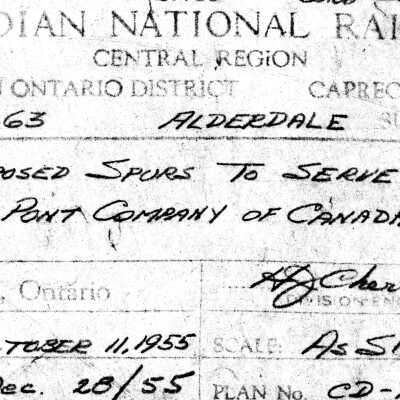 DIAN NATIONAL RAI
CENTRAL REGION
ONTARIO DISTRICT CAPREO
63 ALDERDALE SU
POSED SPURS TO SERVE
PONT COMPANY OF CANADA
, Ontario
DIVISION EN
TOBER 11, 1955 SCALE: AS S
Dec. 28/55 PLAN No. CD-